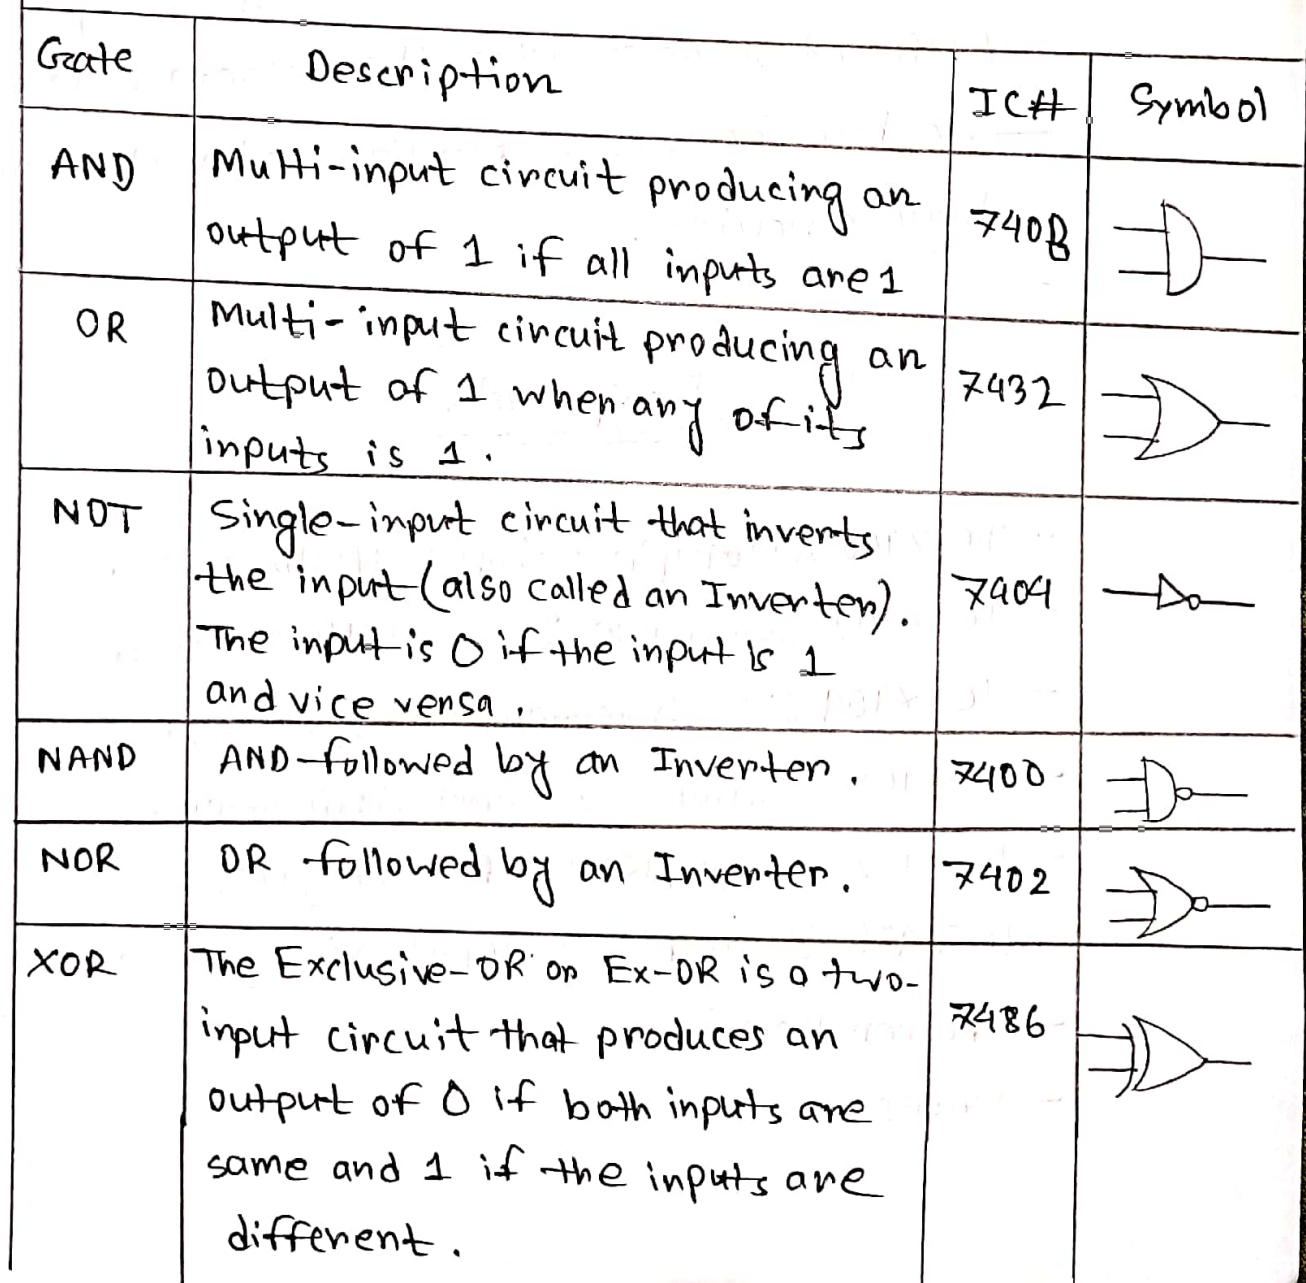 Gate Description IC# Symbol
AND Multi-input circuit producing an
output of 1 if all inputs are 1
7408
OR Multi-input circuit producing an
output of 1 when any of its
inputs is 1.
7432
NOT Single-input circuit that inverts
the input (also called an Inverter).
The input is 0 if the input is 1
and vice versa.
7404
NAND AND-followed by an Inverter. 7400
NOR OR followed by an Inverter. 7402
XOR The Exclusive-OR or Ex-OR is a two-
input circuit that produces an
output of 0 if both inputs are
same and 1 if the inputs are
different.
7486